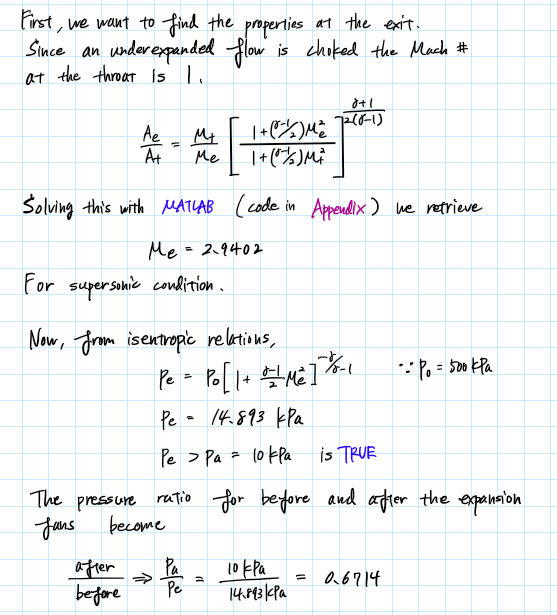 First, we want to find the properties at the exit.
Since an underexpanded flow is choked the Mach #
at the throat is 1.
Ae/At = Mt/Me [ (1+(γ-1/2)Me²) / (1+(γ-1/2)Mt²) ]^(γ+1 / 2(γ-1))
Solving this with MATLAB (code in Appendix) we retrieve
Me = 2.9402
For supersonic condition.
Now, from isentropic relations,
Pe = Po[ 1 + γ-1/2 Me² ]^(-γ/γ-1) ∵ Po = 500 kPa
Pe = 14.893 kPa
Pe > Pa = 10 kPa is TRUE
The pressure ratio for before and after the expansion
fans become
after/before ⇒ Pa/Pe = 10 kPa/14.893 kPa = 0.6714